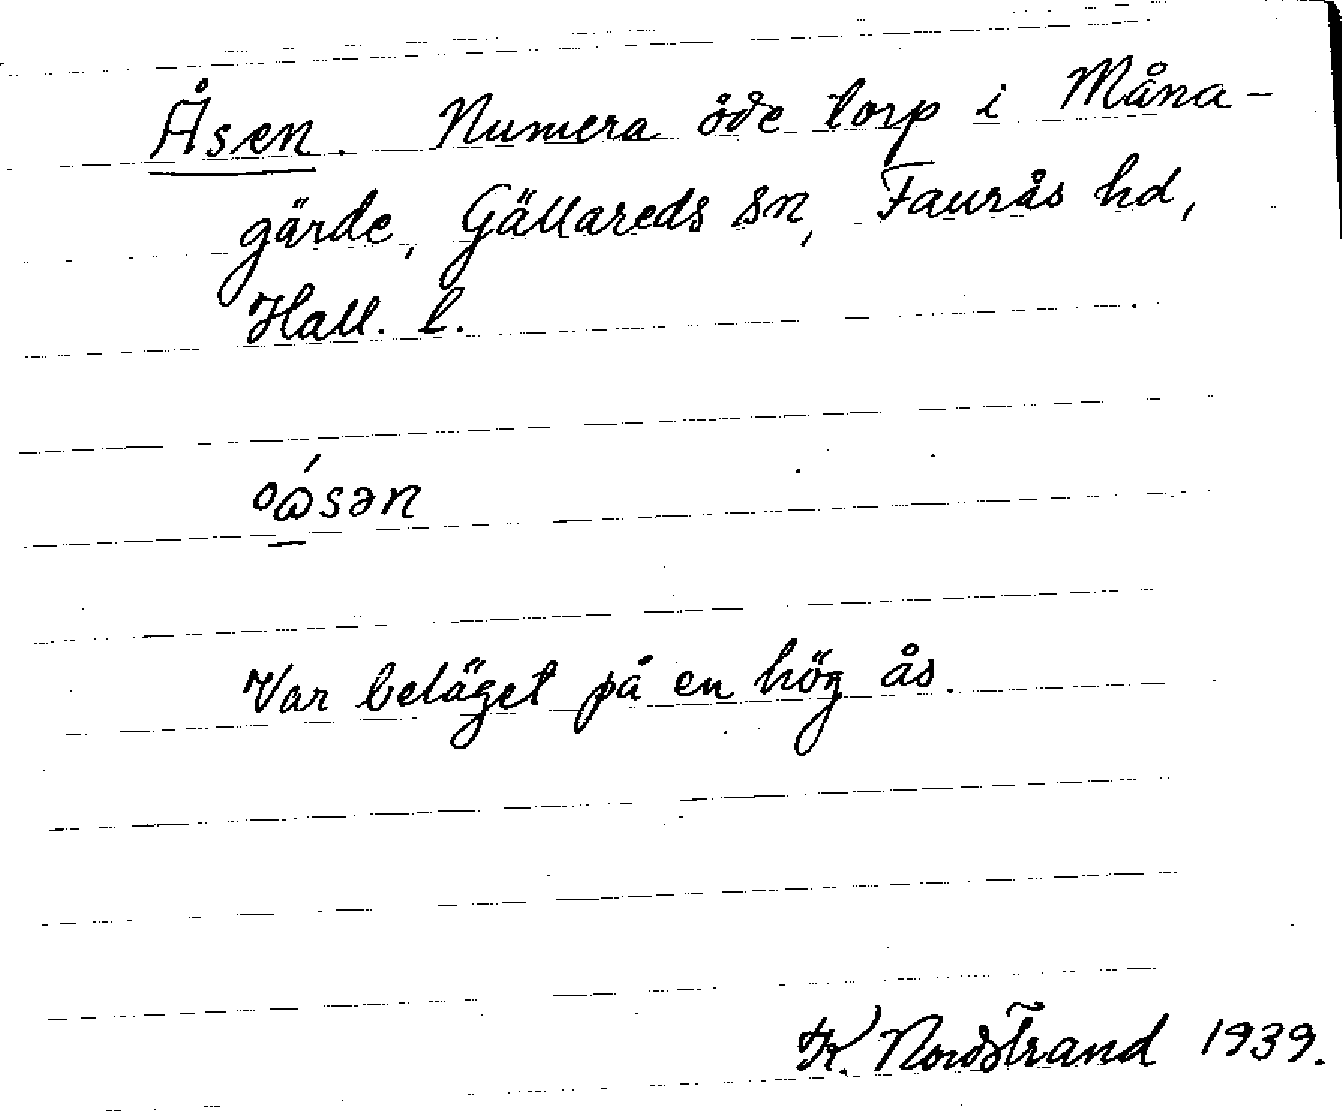 Åsen. Numera öde torp i Måna-
gärde, Gällareds sn, Faurås hd,
Hall. l.
Var beläget på en hög ås.
K. Nordstrand 1939.